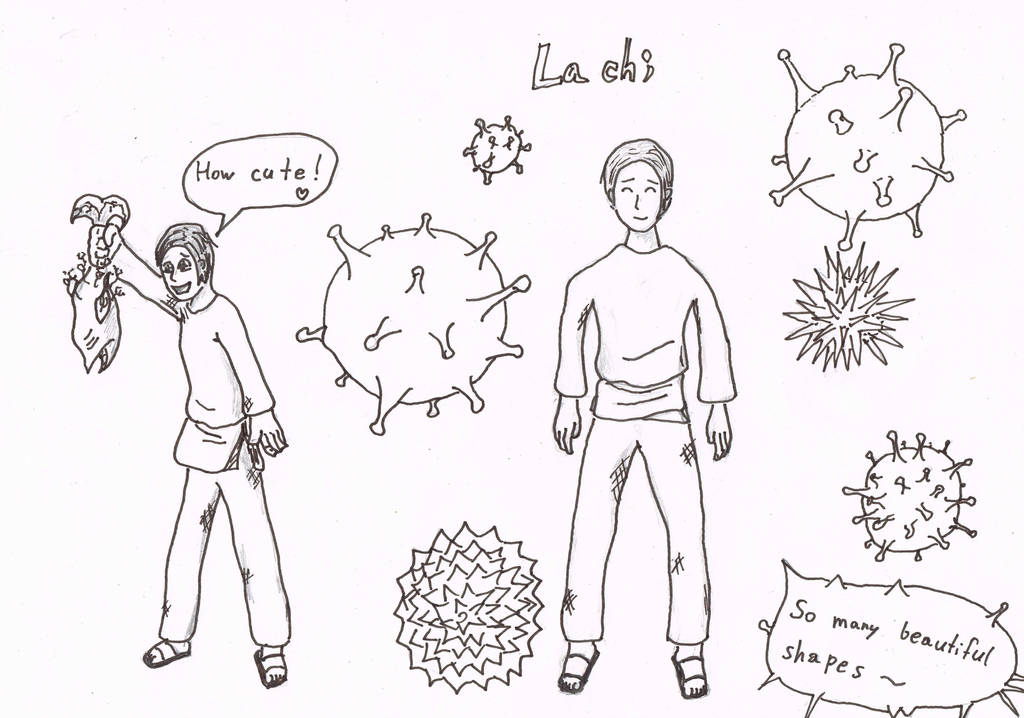 La chi
How cute!
So many beautiful
shapes ~